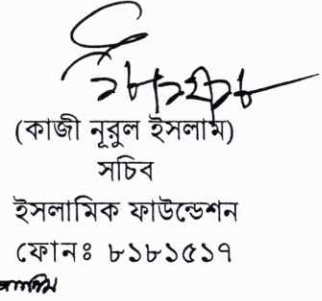 (কাজী নূরুল ইসলাম)
সচিব
ইসলামিক ফাউন্ডেশন
ফোনঃ ৮১৮১৫১৭